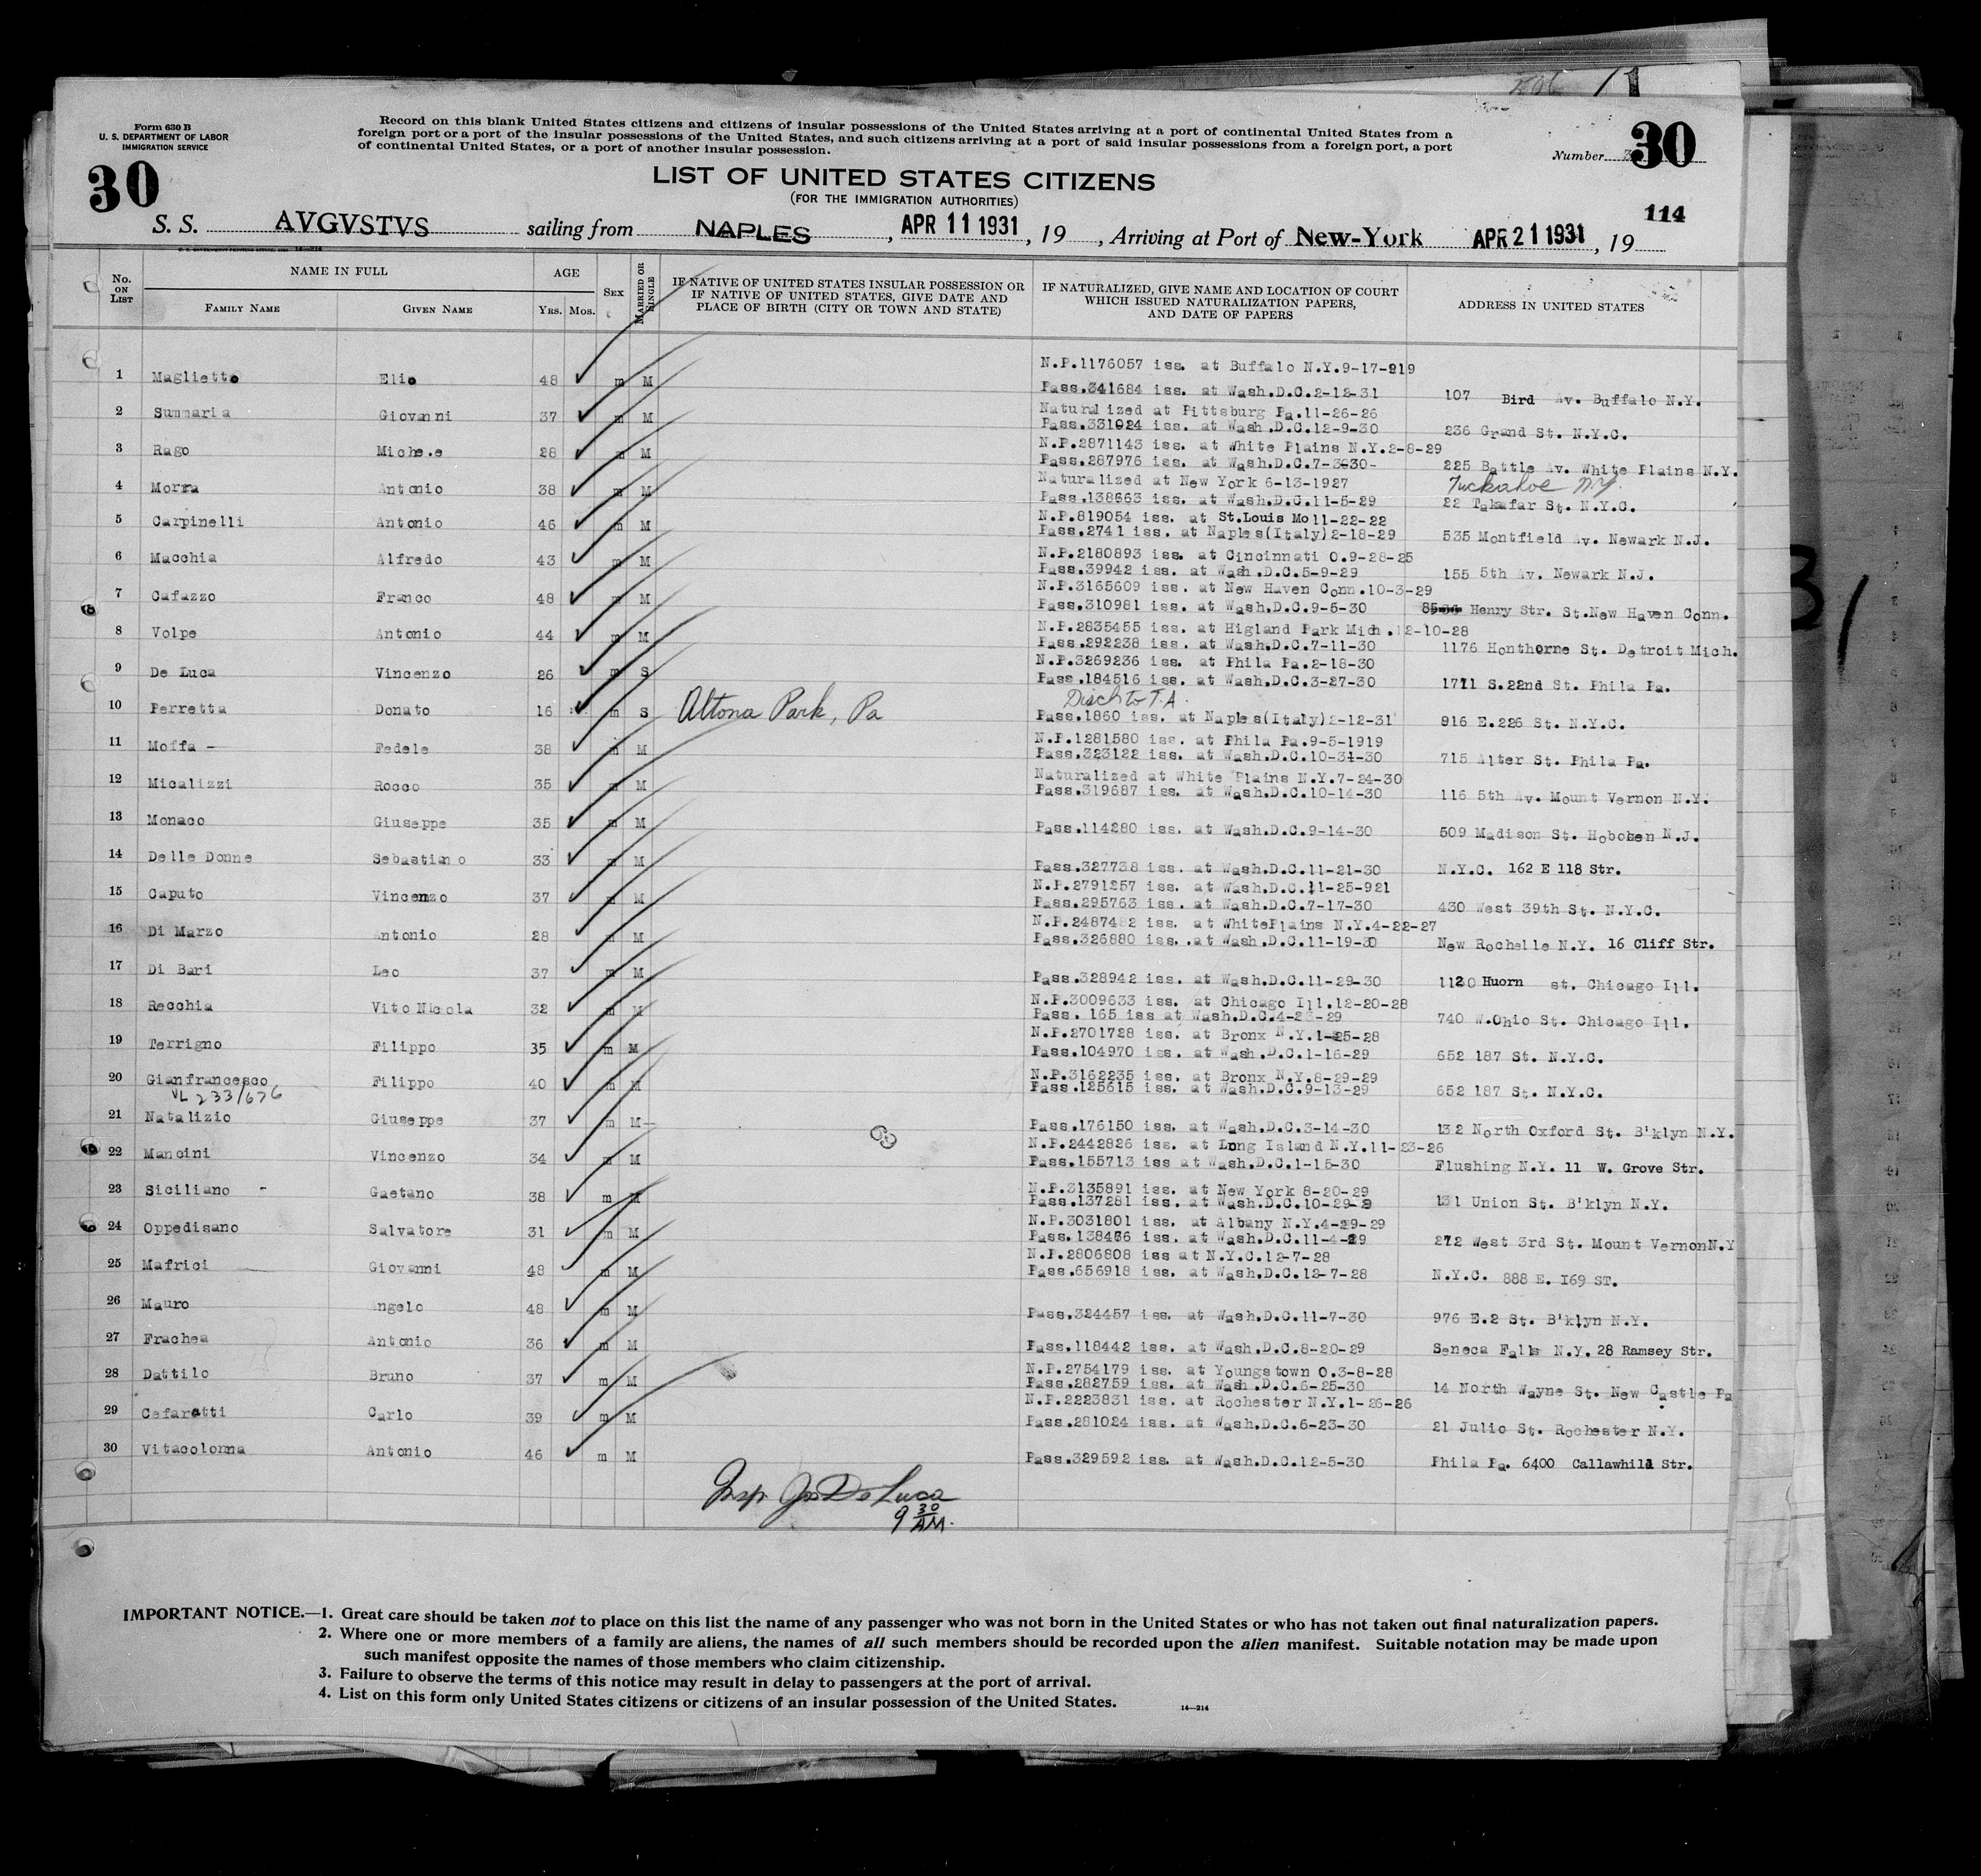 Form 630 B
U. S. DEPARTMENT OF LABOR
IMMIGRATION SERVICE
Record on this blank United States citizens and citizens of insular possessions of the United States arriving at a port of continental United States from a
foreign port or a port of the insular possessions of the United States, and such citizens arriving at a port of said insular possessions from a foreign port, a port
of continental United States, or a port of another insular possession.
Number 30
30
LIST OF UNITED STATES CITIZENS
(FOR THE IMMIGRATION AUTHORITIES)
114
S. S. AVGVSTVS sailing from NAPLES, APR 11 1931, 19 , Arriving at Port of New-York APR 21 1931, 19
No. ON LIST
NAME IN FULL
FAMILY NAME
GIVEN NAME
AGE
YRS. MOS.
SEX
MARRIED OR SINGLE
IF NATIVE OF UNITED STATES INSULAR POSSESSION OR
IF NATIVE OF UNITED STATES, GIVE DATE AND
PLACE OF BIRTH (CITY OR TOWN AND STATE)
IF NATURALIZED, GIVE NAME AND LOCATION OF COURT
WHICH ISSUED NATURALIZATION PAPERS,
AND DATE OF PAPERS
ADDRESS IN UNITED STATES
N.P.1176057 iss. at Buffalo N.Y.9-17-919
1 Maglietto Elio 48 m M
Pass.341684 iss. at Wash.D.C.2-12-31 107 Bird Av. Buffalo N.Y.
2 Summaria Giovanni 37 m M Naturalized at Pittsburg Pa.11-26-26
Pass.331024 iss. at Wash.D.C.12-9-30 236 Grand St. N.Y.C.
3 Rago Michele 28 m M N.P.2871143 iss. at White Plains N.Y.2-8-29
Pass.287976 iss. at Wash.D.C.7-3030- 225 Battle Av. White Plains N.Y.
4 Morra Antonio 38 m M Naturalized at New York 6-13-1927 Tuckahoe N.Y.
Pass.138663 iss. at Wash.D.C.11-5-29 22 Takafar St. N.Y.C.
5 Carpinelli Antonio 46 m M N.P.819054 iss. at St.Louis Mo11-22-22
Pass.2741 iss. at Naples(Italy)2-18-29 535 Montfield Av. Newark N.J.
6 Macchia Alfredo 43 m M N.P.2180893 iss. at Cincinnati O.9-28-25
Pass.39942 iss. at Wash.D.C.5-9-29 155 5th Av. Newark N.J.
7 Cafazzo Franco 48 m M N.P.3165609 iss. at New Haven Conn.10-3-29
Pass.310981 iss. at Wash.D.C.9-5-30 Henry Str. St.New Haven Conn.
8 Volpe Antonio 44 m M N.P.2835455 iss. at Higland Park Mich.12-10-28
Pass.292238 iss. at Wash.D.C.7-11-30 1176 Honthorne St. Detroit Mich.
9 De Luca Vincenzo 26 m S N.P.3269236 iss. at Phila Pa.2-18-30
Pass.184516 iss. at Wash.D.C.3-27-30 1711 S.22nd St. Phila Pa.
10 Perretta Donato 16 m S Altona Park, Pa Disch to T.A.
Pass.1860 iss. at Naples(Italy)2-12-31 916 E.226 St. N.Y.C.
11 Moffa - Fedele 38 m M N.P.1281580 iss. at Phila Pa.9-5-1919
Pass.323122 iss. at Wash.D.C.10-31-30 715 Alter St. Phila Pa.
12 Micalizzi Rocco 35 m M Naturalized at White Plains N.Y.7-24-30
Pass.319687 iss. at Wash.D.C.10-14-30 116 5th Av. Mount Vernon N.Y.
13 Monaco Giuseppe 35 m M
Pass.114280 iss. at Wash.D.C.9-14-30 509 Madison St. Hoboken N.J.
14 Delle Donne Sebastiano 33 m M
Pass.327738 iss. at Wash.D.C.11-21-30 N.Y.C. 162 E 118 Str.
15 Caputo Vincenzo 37 m M N.P.2791257 iss. at Wash.D.C.11-25-921
Pass.295763 iss. at Wash.D.C.7-17-30 430 West 39th St. N.Y.C.
16 Di Marzo Antonio 28 m M N.P.2487482 iss. at WhitePlains N.Y.4-22-27
Pass.326880 iss. at Wash.D.C.11-19-30 New Rochelle N.Y. 16 Cliff Str.
17 Di Bari Leo 37 m M
Pass.328942 iss. at Wash.D.C.11-29-30 1120 Huorn st. Chicago Ill.
18 Recchia Vito Nicola 32 m M N.P.3009633 iss. at Chicago Ill.12-20-28
Pass. 165 iss at Wash.D.C.4-23-29 740 W.Ohio St. Chicago Ill.
19 Terrigno Filippo 35 m M N.P.2701728 iss. at Bronx N.Y.1-25-28
Pass.104970 iss. at Wash.D.C.1-16-29 652 187 St. N.Y.C.
20 Gianfrancesco Filippo 40 m M N.P.3162235 iss. at Bronx N.Y.8-29-29
VL 233/676 Pass.125615 iss. at Wash.D.C.9-13-29 652 187 St. N.Y.C.
21 Natalizio Giuseppe 37 m M
Pass.176150 iss. at Wash.D.C.3-14-30 132 North Oxford St. B'klyn N.Y.
22 Mancini Vincenzo 34 m M N.P.2442826 iss. at Long Island N.Y.11-23-26
Pass.155713 iss at Wash.D.C.1-15-30 Flushing N.Y. 11 W. Grove Str.
23 Siciliano - Gaetano 38 m M N.P.3135891 iss. at New York 8-20-29
Pass.137281 iss. at Wash.D.C.10-29-29 131 Union St. B'klyn N.Y.
24 Oppedisano Salvatore 31 m M N.P.3031801 iss. at Albany N.Y.4-29-29
Pass.138466 iss. at Wash.D.C.11-4-29 272 West 3rd St. Mount VernonN.Y
25 Mafrici Giovanni 48 m M N.P.2806808 iss at N.Y.C.12-7-28
Pass.656918 iss. at Wash.D.C.12-7-28 N.Y.C. 888 E. 169 ST.
26 Mauro Angelo 48 m M
Pass.324457 iss. at Wash.D.C.11-7-30 976 E.2 St. B'klyn N.Y.
27 Frachea Antonio 36 m M
Pass.118442 iss. at Wash.D.C.8-20-29 Seneca Falls N.Y. 28 Ramsey Str.
28 Dattilo Bruno 37 m M N.P.2754179 iss. at Youngstown O.3-8-28
Pass.282759 iss. at Wash.D.C.6-25-30 14 North Wayne St. New Castle Pa
29 Cafaratti Carlo 39 m M N.P.2223831 iss. at Rochester N.Y.1-26-26
Pass.281024 iss. at Wash.D.C.6-23-30 21 Julio St. Rochester N.Y.
30 Vitacolonna Antonio 46 m M
Pass.329592 iss. at Wash.D.C.12-5-30 Phila Pa. 6400 Callawhill Str.
Insp Jos De Luca
9 30 AM.
IMPORTANT NOTICE.—1. Great care should be taken not to place on this list the name of any passenger who was not born in the United States or who has not taken out final naturalization papers.
2. Where one or more members of a family are aliens, the names of all such members should be recorded upon the alien manifest. Suitable notation may be made upon
such manifest opposite the names of those members who claim citizenship.
3. Failure to observe the terms of this notice may result in delay to passengers at the port of arrival.
4. List on this form only United States citizens or citizens of an insular possession of the United States.
14—214